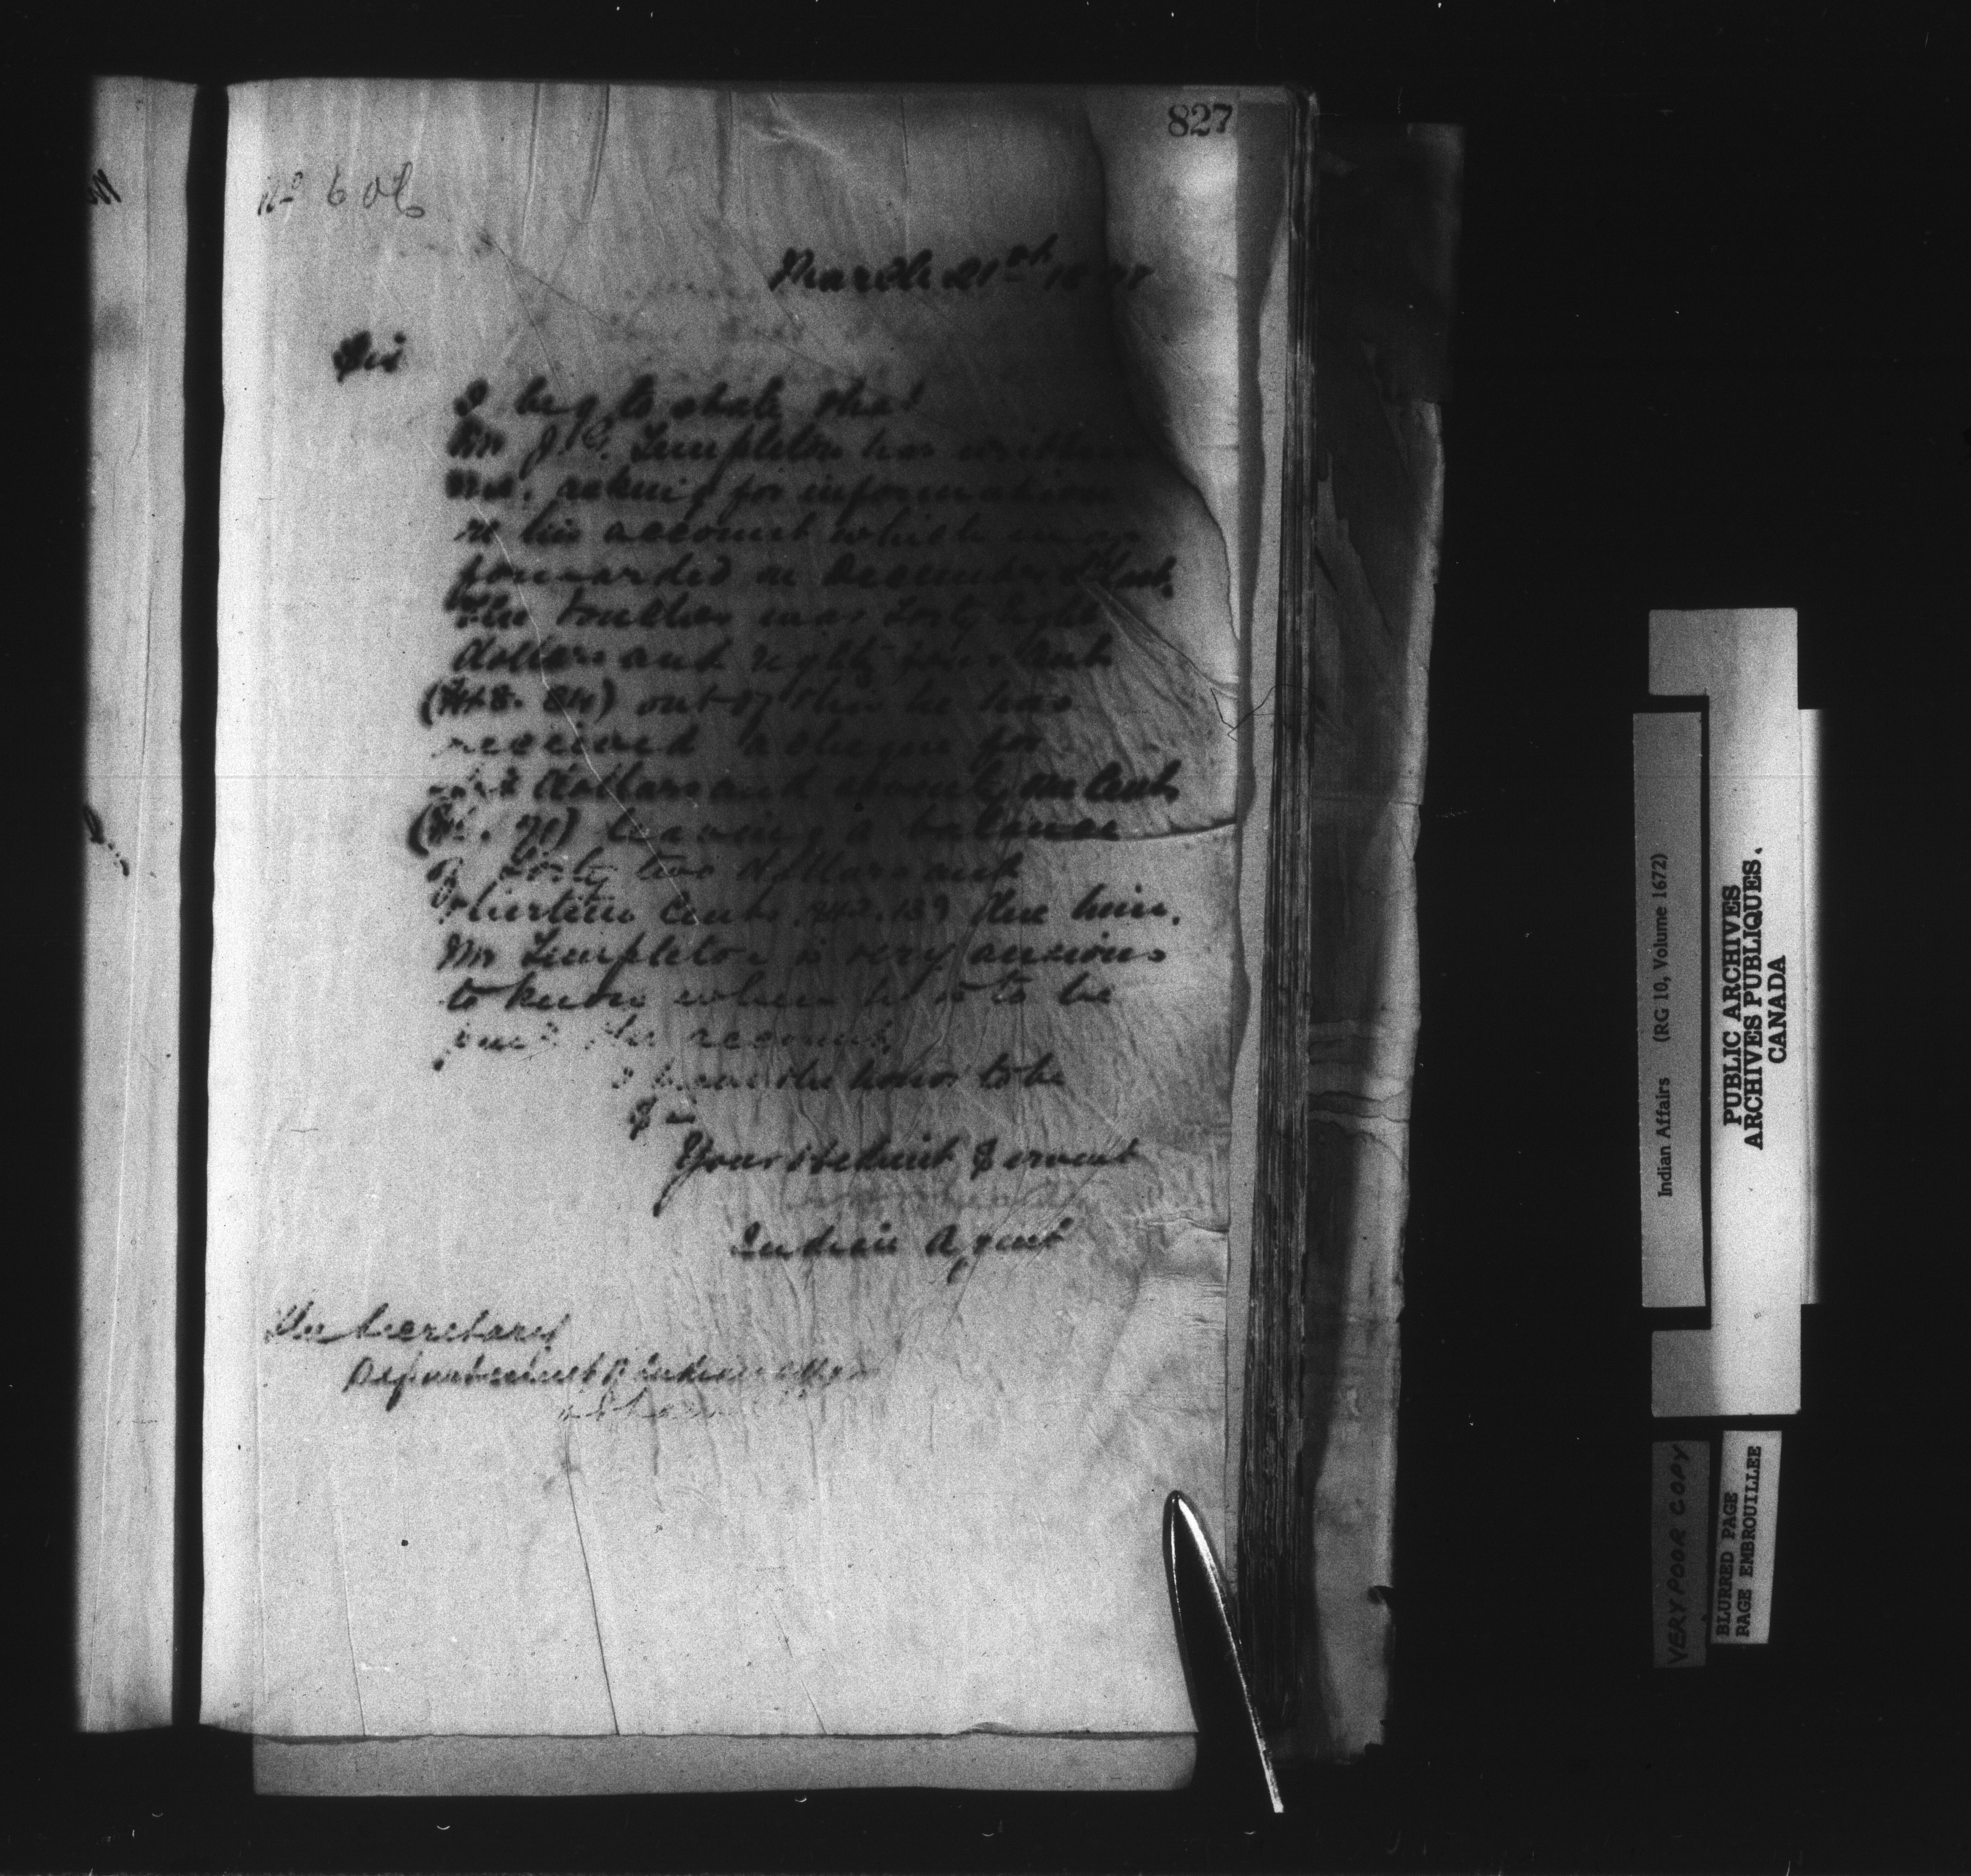 827
No 606
March 21st 18
Sir
I beg to state that
Mr J. G. Templeton has written
me, asking for information
re his account which was
forwarded on December last.
The Voucher was Forty Eight
dollars and eighty four Cents
(48.84) out of this he has
received a cheque for
dollars and seventy one Cents
(6.71) leaving a balance
of Forty two dollars and
thirteen Cents 42.13 due him.
Mr Templeton is very anxious
to know when he is to be
paid the account
I have the honor to be
Your obedient Servant
Indian Agent
The Secretary
Department of Indian Affairs
Indian Affairs (RG 10, Volume 1672)
PUBLIC ARCHIVES
ARCHIVES PUBLIQUES.
CANADA
VERY POOR COPY
BLURRED PAGE
PAGE EMBROUILLEE